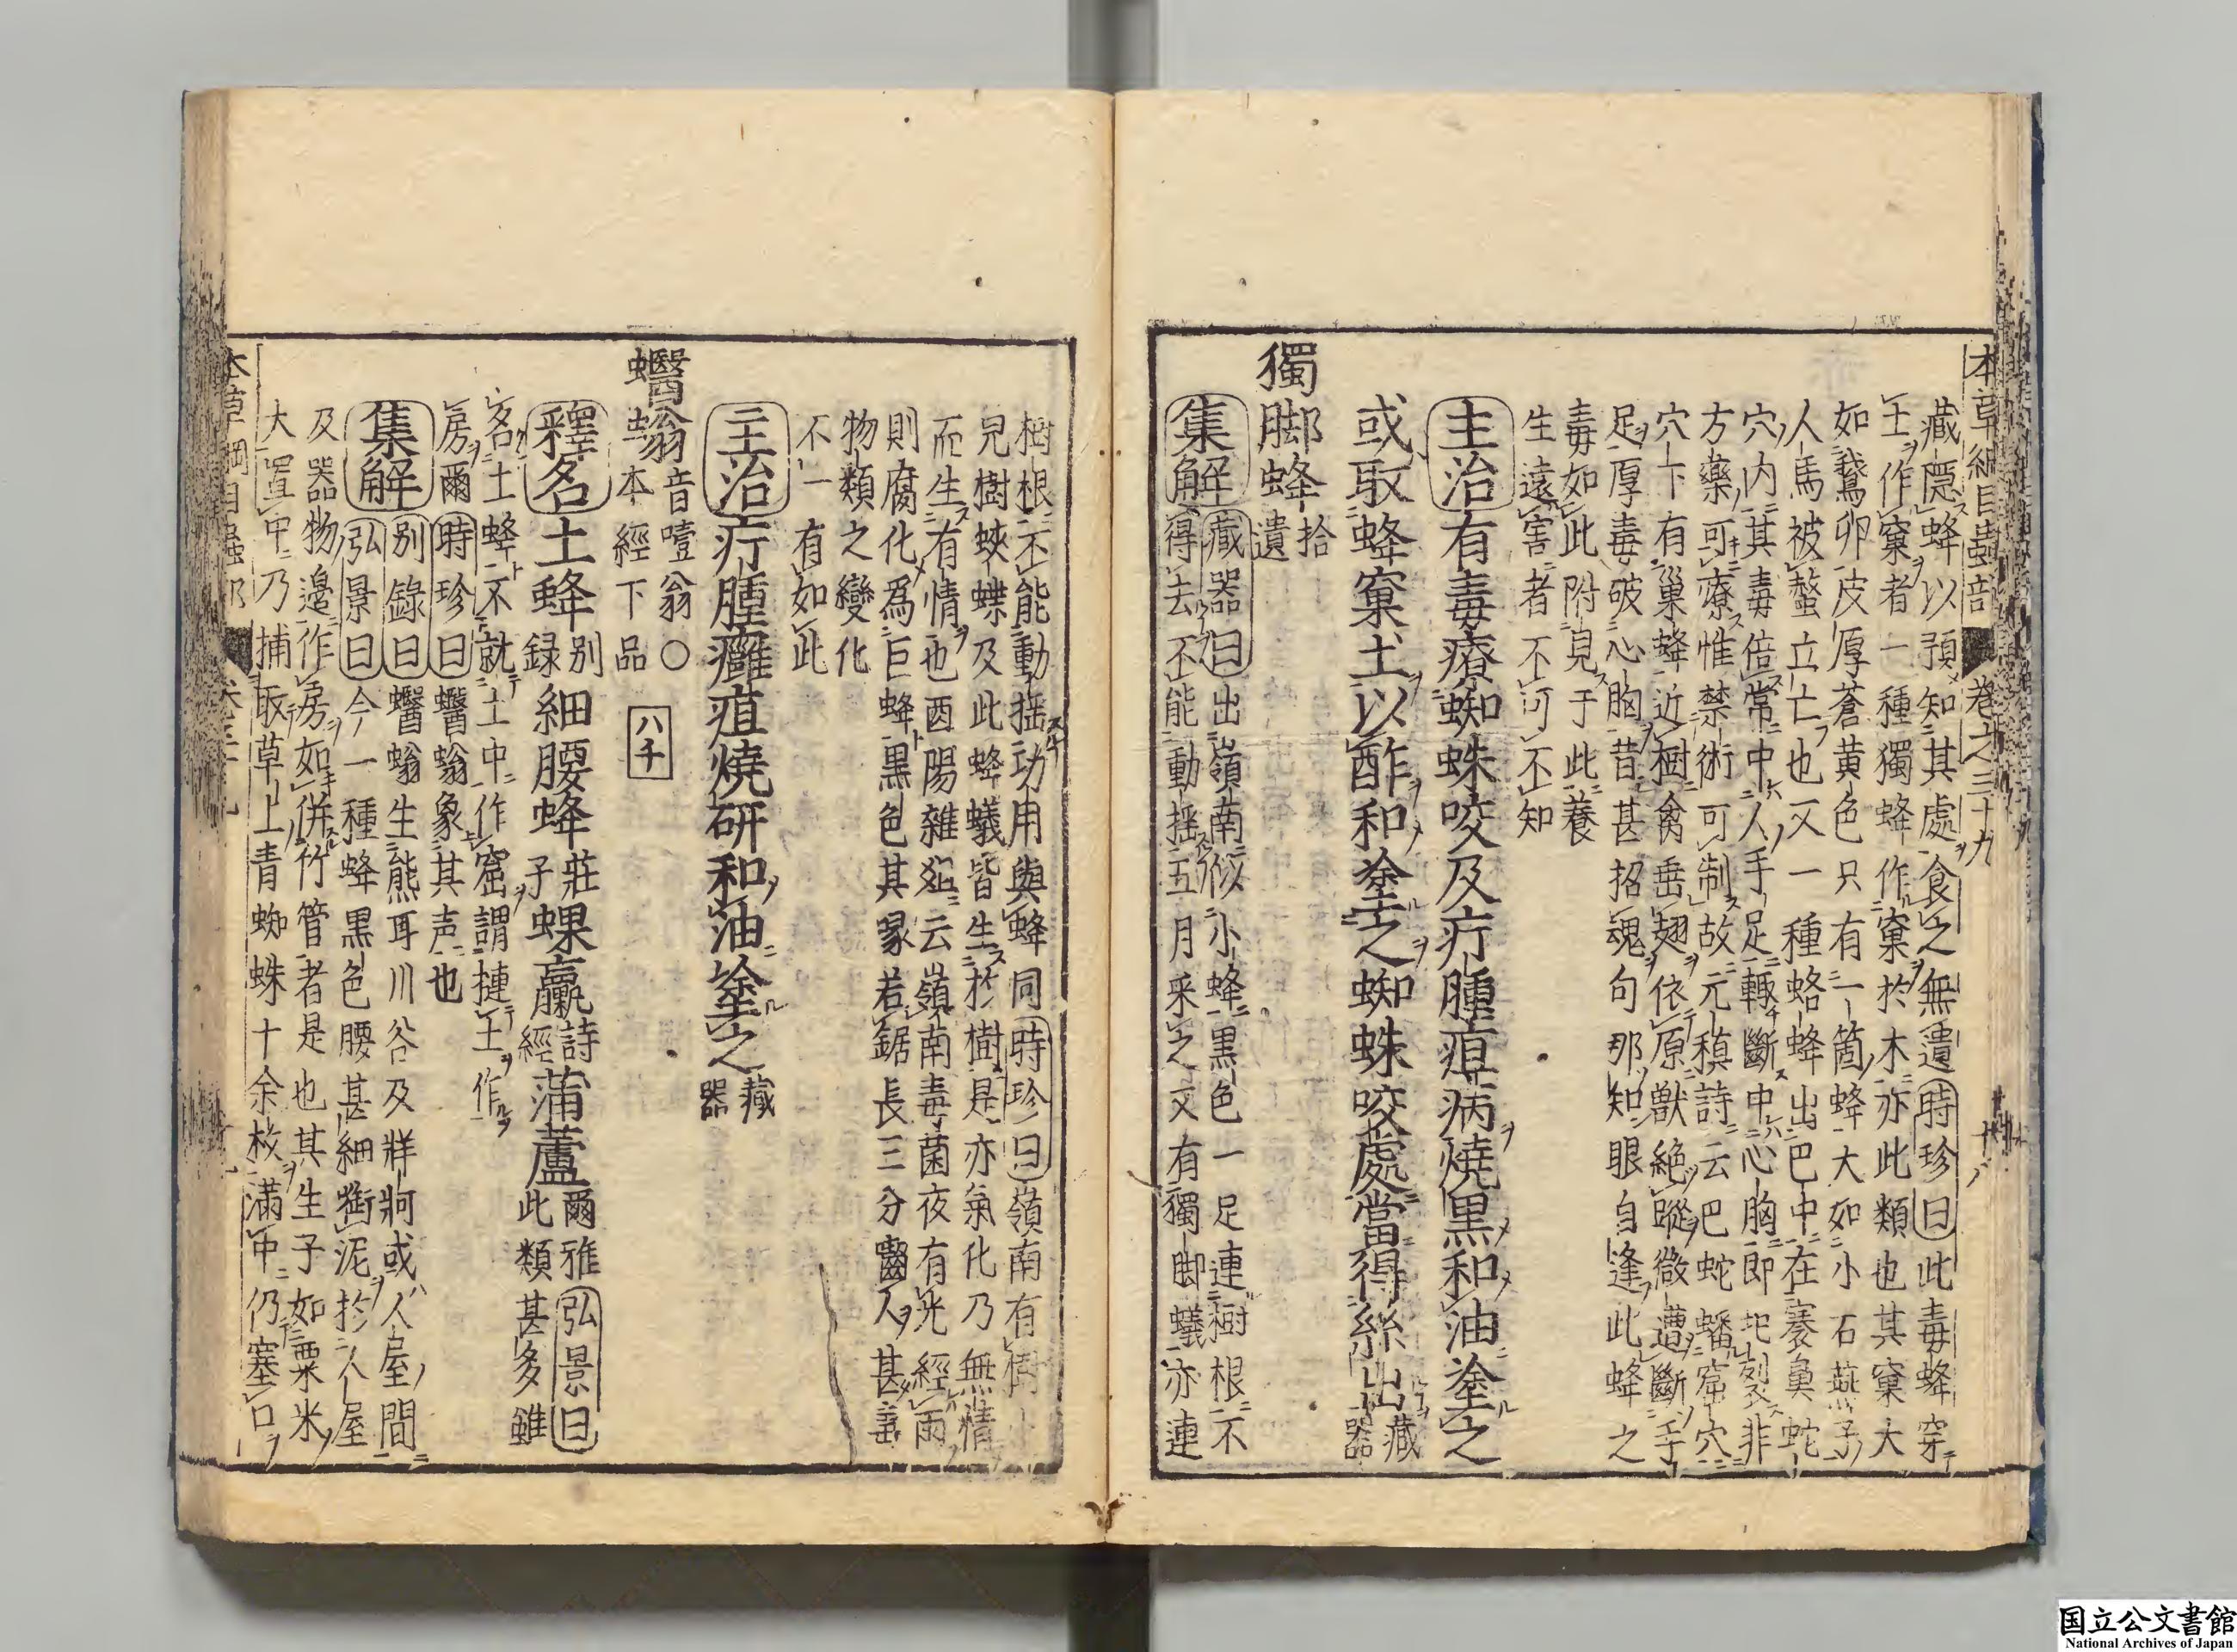 本草綱目蟲部 卷之三十九 十八
藏隱蜂以預知其處食之無遺時珍曰此毒蜂穿
王作窠者一種獨蜂作窠於木亦此類也其窠大
如鵞卵皮厚蒼黃色只有一箇蜂大如小石燕子
人馬被螫立亡也又一種蛒蜂出巴中在褰鼻蛇
穴內其毒倍常中人手足輒斷中心胸即圯裂非
方藥可療惟禁術可制故元稹詩云巴蛇蟠窟穴
穴下有巢蜂近樹禽垂翅依原獸絶蹤微遭斷手
足厚毒破心胸昔甚招魂句那知眼自逢此蜂之
毒如此附見于此養
生遠害者不可不知
主治有毒療蜘蛛咬及疔腫疽病燒黑和油塗之
或取蜂窠土以酢和塗之蜘蛛咬處當得絲出藏器
獨脚蜂拾遺
集解藏器曰出嶺南似小蜂黑色一足連樹根不
得去不能動搖五月采之又有獨脚蟻亦連
樹根不能動搖功用與蜂同時珍曰嶺南有樹小
兒樹蛺蝶及此蜂蟻皆生於樹是亦氣化乃無情
而生有情也酉陽雜俎云嶺南毒菌夜有光經雨
則腐化爲巨蜂黑色其喙若鋸長三分齧人甚毒
物類之變化
不一有如此
主治疔腫癰疽燒研和油塗之藏器
蠮螉音噎翁〇本經下品 八千
釋名土蜂別録細腰蜂莊子蜾蠃詩經蒲蘆爾雅弘景曰此類甚多雖
名土蜂不就土中作窟謂摙土作
房爾時珍曰蠮螉象其声也
集解別錄曰蠮螉生熊耳川谷及牂牁或人屋間
弘景曰今一種蜂黒色腰甚細銜泥於人屋
及器物邊作房如併竹管者是也其生子如粟米
大置中乃捕取草上青蜘蛛十余枚滿中仍塞口
本草綱目蟲部
国立公文書館
National Archives of Japan